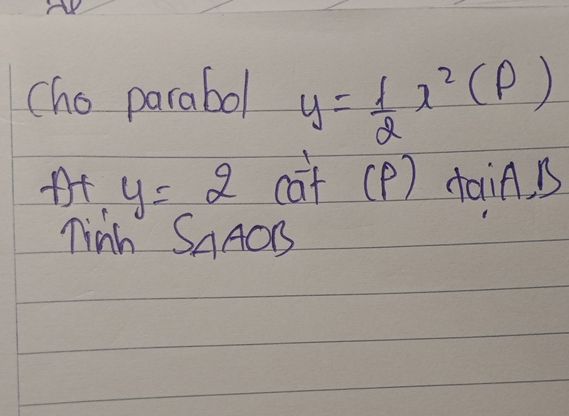 Cho parabol y = 1/2 x² (P)
Đt y = 2 cắt (P) tại A, B
Tính SΔAOB